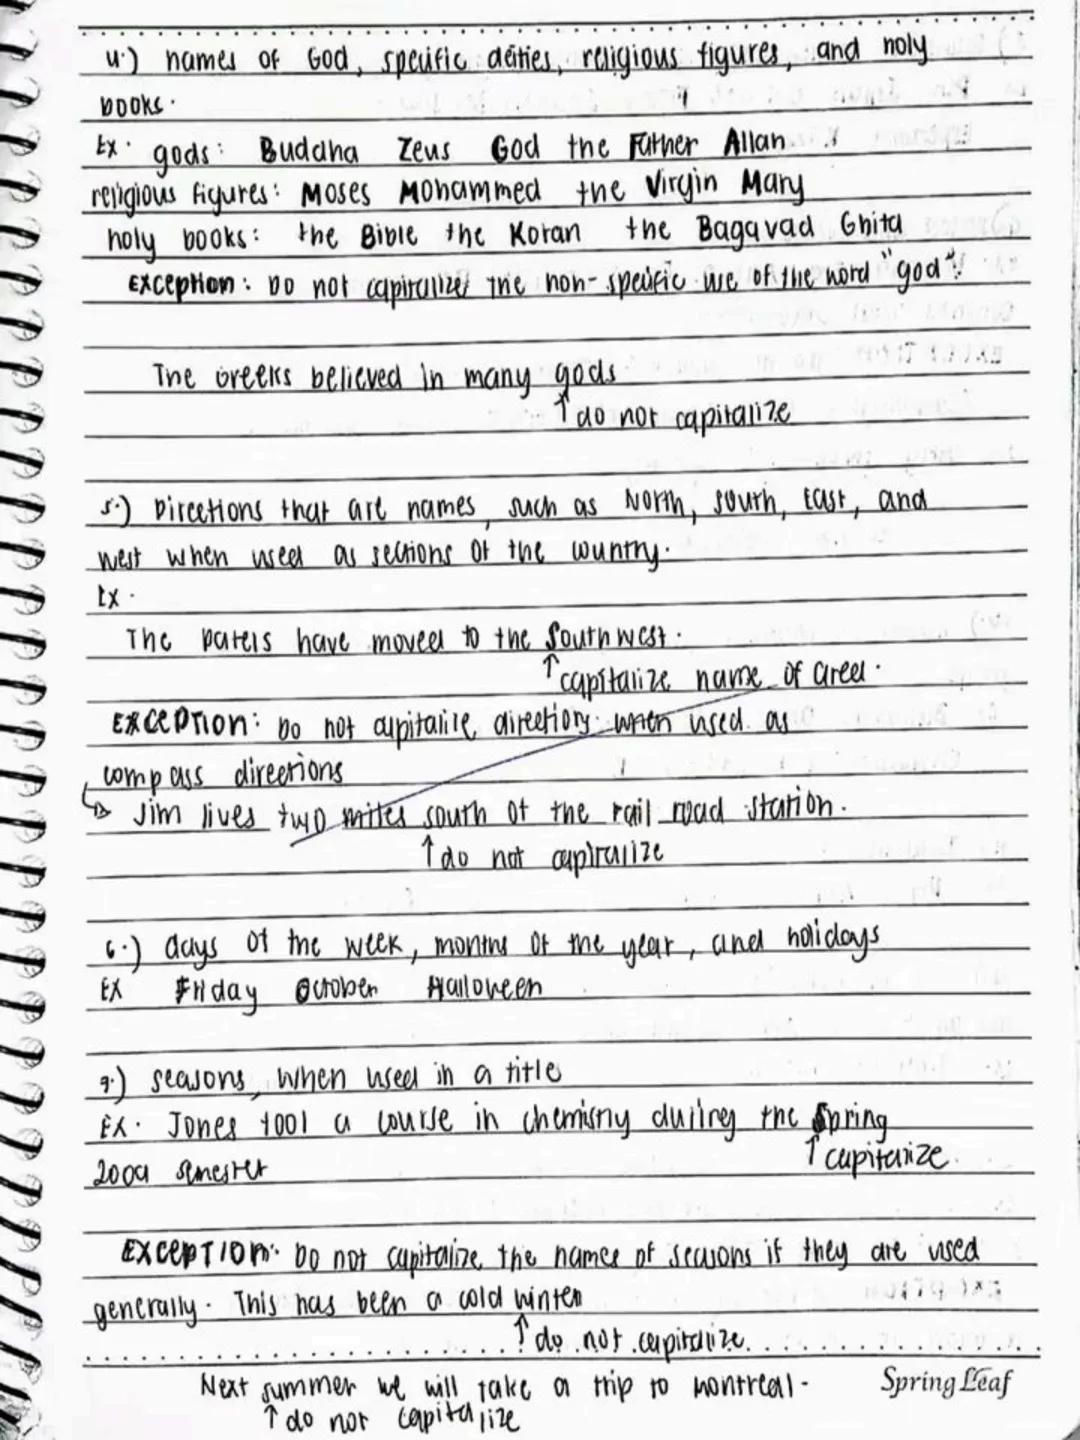 4.) names of God, specific deities, religious figures, and holy
books.
Ex. gods: Buddha Zeus God the Father Allah
religious figures: Moses Mohammed the Virgin Mary
holy books: the Bible the Koran the Bagavad Ghita
Exception: Do not capitalize the non-specific use of the word "god".
The Greeks believed in many gods
↑ do not capitalize
5.) Directions that are names, such as North, South, East, and
West when used as sections of the country.
Ex.
The Patels have moved to the Southwest.
↑ capitalize name of area.
EXCEPTION: Do not capitalize directions when used as
compass directions
Jim lives two miles south of the rail road station.
↑ do not capitalize
6.) days of the week, months of the year, and holidays
EX Friday October Halloween
7.) seasons, when used in a title
EX. Jones took a course in chemistry during the Spring
↑ capitalize.
2009 semester
EXCEPTION: Do not capitalize the names of seasons if they are used
generally. This has been a cold winter
↑ do not capitalize.
Next summer we will take a trip to Montreal.
Spring Leaf
↑ do not capitalize